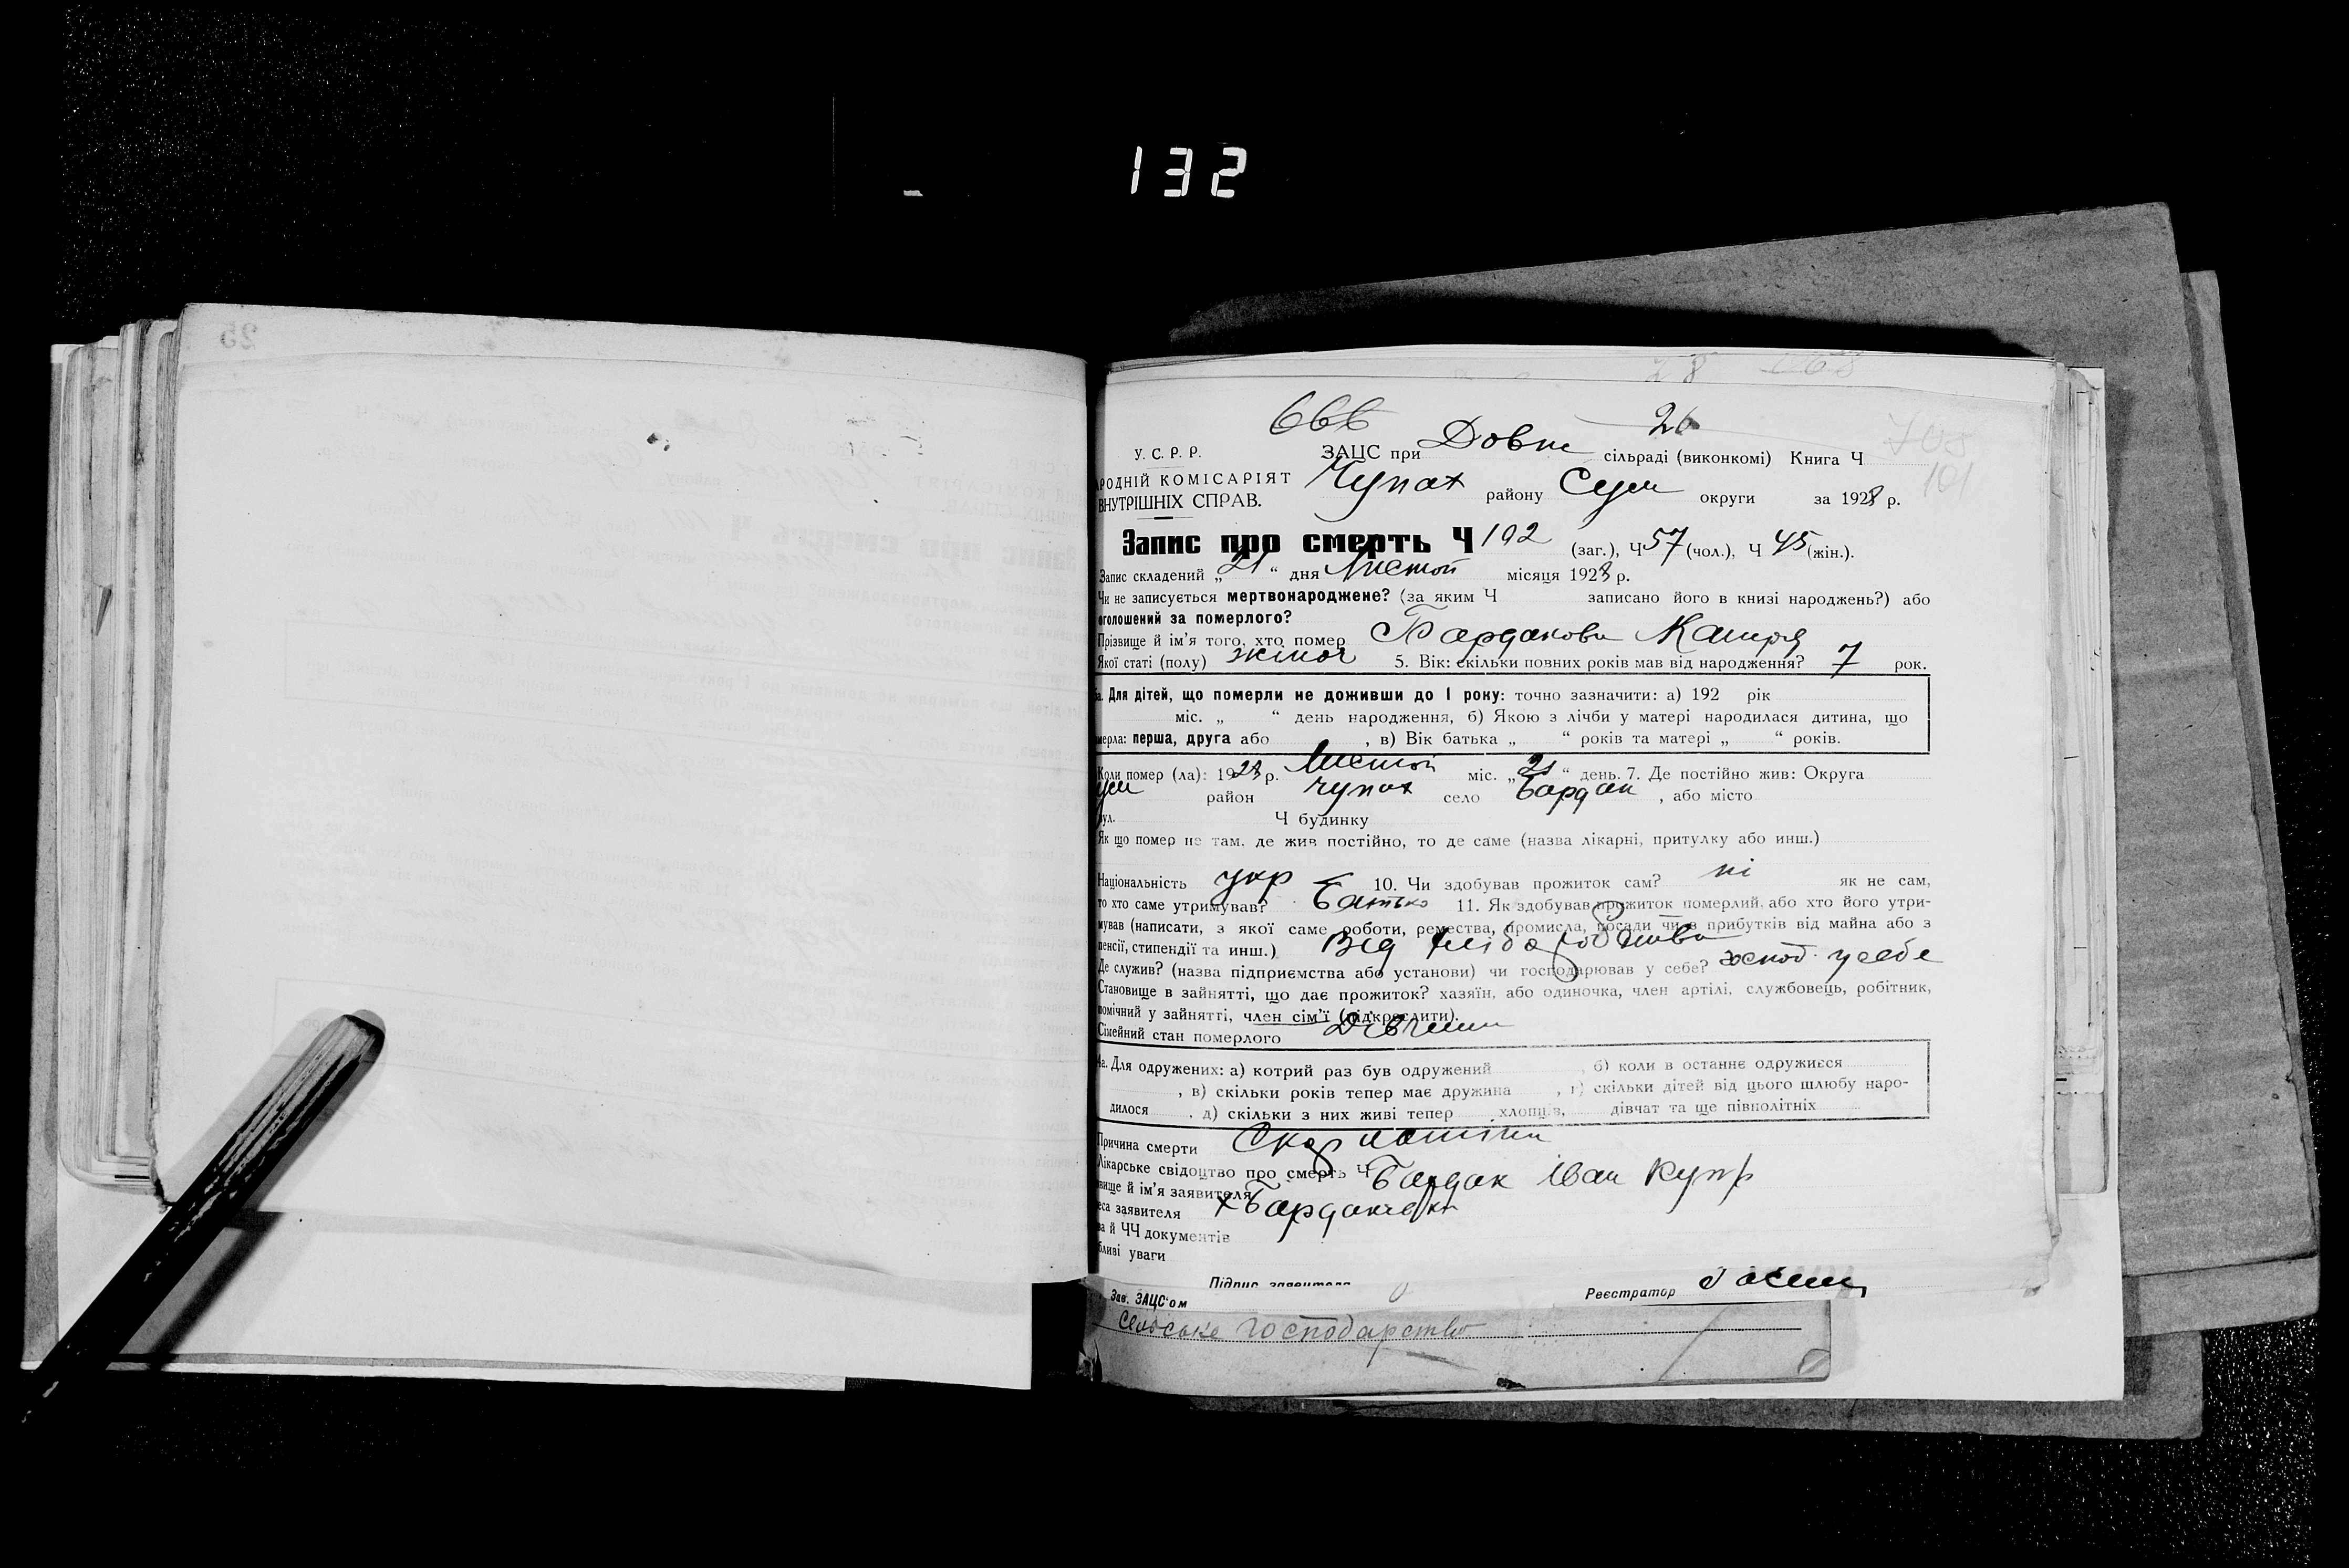 132
25
28
666
26
У. С. Р. Р. ЗАЦС при Довж сільраді (виконкомі) Книга Ч
РОДНІЙ КОМІСАРІЯТ Чупах району Сум округи за 1928 р. 101
ВНУТРІШНІХ СПРАВ.
Запис про смерть Ч 102 (заг.), Ч 57 (чол.), Ч 45 (жін.).
Запис складений „21“ дня Листоп місяця 1928 р.
Чи не записується мертвонароджене? (за яким Ч записано його в книзі народжень?) або
оголошений за померлого?
Прізвище й ім'я того, хто помер Бардакова Катря
Якої статі (полу) жіноч 5. Вік: скільки повних років мав від народження? 7 рок.
5а. Для дітей, що померли не доживши до 1 року: точно зазначити: а) 192 рік
міс. „ “ день народження, б) Якою з лічби у матері народилася дитина, що
мерла: перша, друга або , в) Вік батька „ “ років та матері „ “ років.
Коли помер (ла): 1928 р. Листоп міс. „21“ день. 7. Де постійно жив: Округа
Сум район Чупах село Бардак , або місто
вул. Ч будинку
Як що помер не там, де жив постійно, то де саме (назва лікарні, притулку або инш.)
Національність укр 10. Чи здобував прожиток сам? ні як не сам,
то хто саме утримував? Батько 11. Як здобував прожиток померлий, або хто його утри-
мував (написати, з якої саме роботи, ремества, промисла, посади чи з прибутків від майна або з
пенсії, стипендії та инш.) Від хліборобства
Де служив? (назва підприємства або установи) чи господарював у себе? господ. у себе
Становище в зайнятті, що дає прожиток? хазяїн, або одиночка, член артілі, службовець, робітник,
помічний у зайнятті, член сім'ї (підкреслити).
Сімейний стан померлого Дівчина
4а. Для одружених: а) котрий раз був одружений , б) коли в останнє одружився
, в) скільки років тепер має дружина , г) скільки дітей від цього шлюбу наро-
дилося , д) скільки з них живі тепер хлопців, дівчат та ще півполітніх
Причина смерти Скарлатіна
Лікарське свідоцтво про смерть Ч
вище й ім'я заявителя Бардак Іван Купр
еса заявителя х Бардаківка
ва й ЧЧ документів
бливі уваги
Підпис заявителя
Зав. ЗАЦС'ом Реєстратор
Сельське господарство